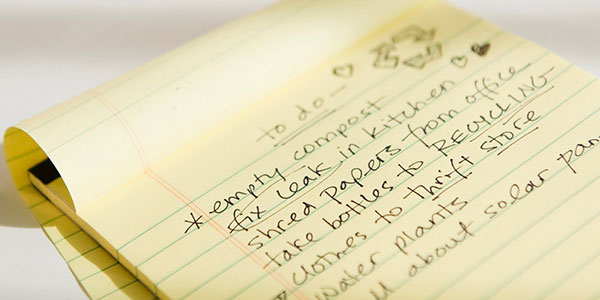 to do -
* empty compost
fix leak in kitchen
shred papers from office
take bottles to RECYCLING
clothes to thrift store
water plants
about solar